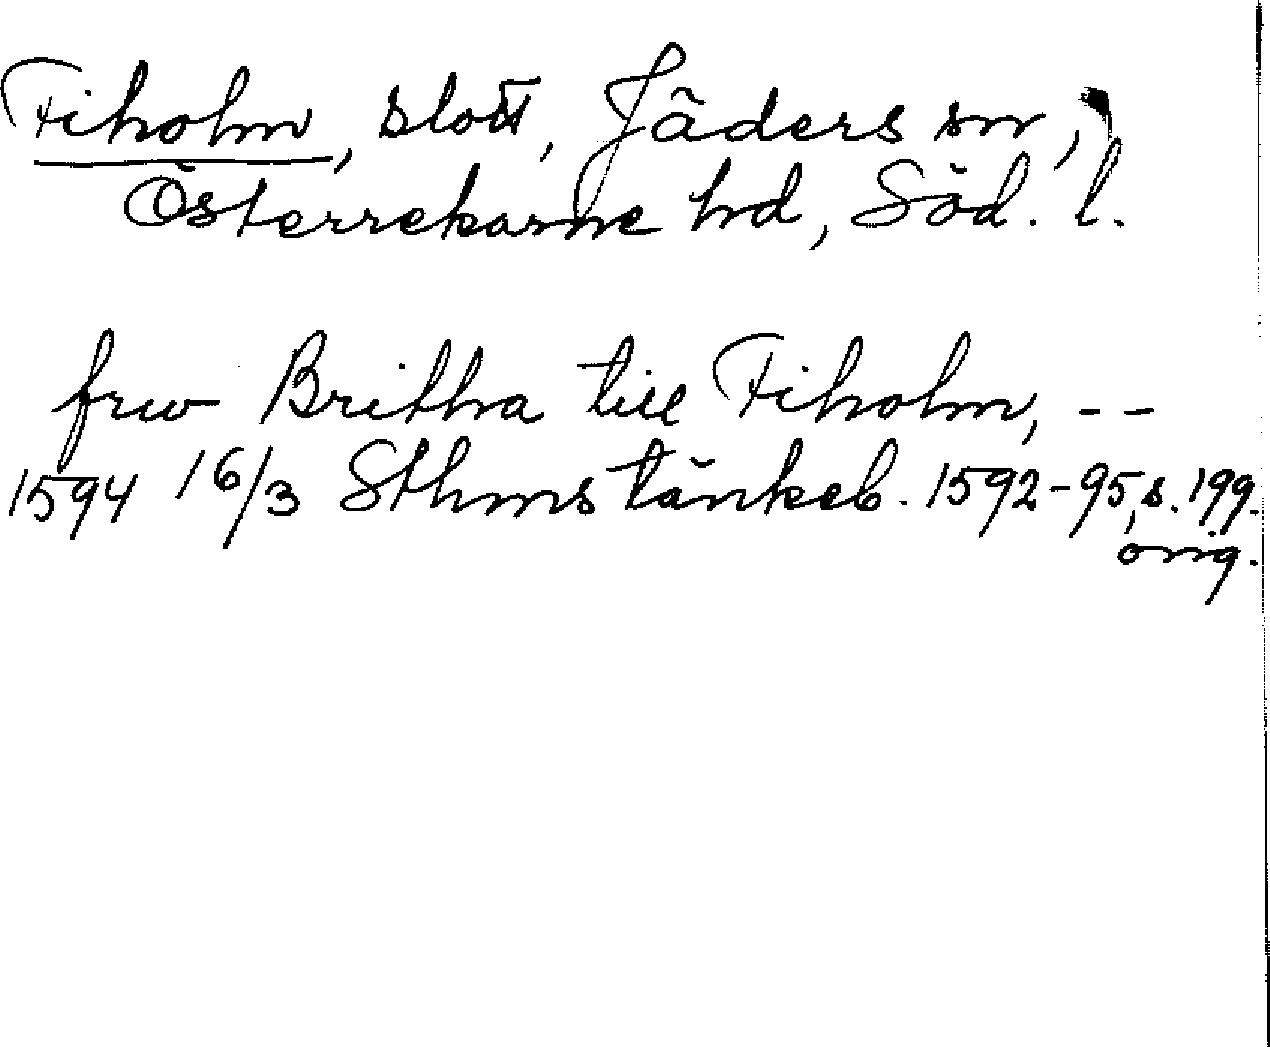 Fiholm, slott, Jäders sn,
Österrekarne hd, Söd. l.
frw Britha till Fiholm, --
1594 16/3 Sthms tänkeb. 1592-95, s. 199.
orig.